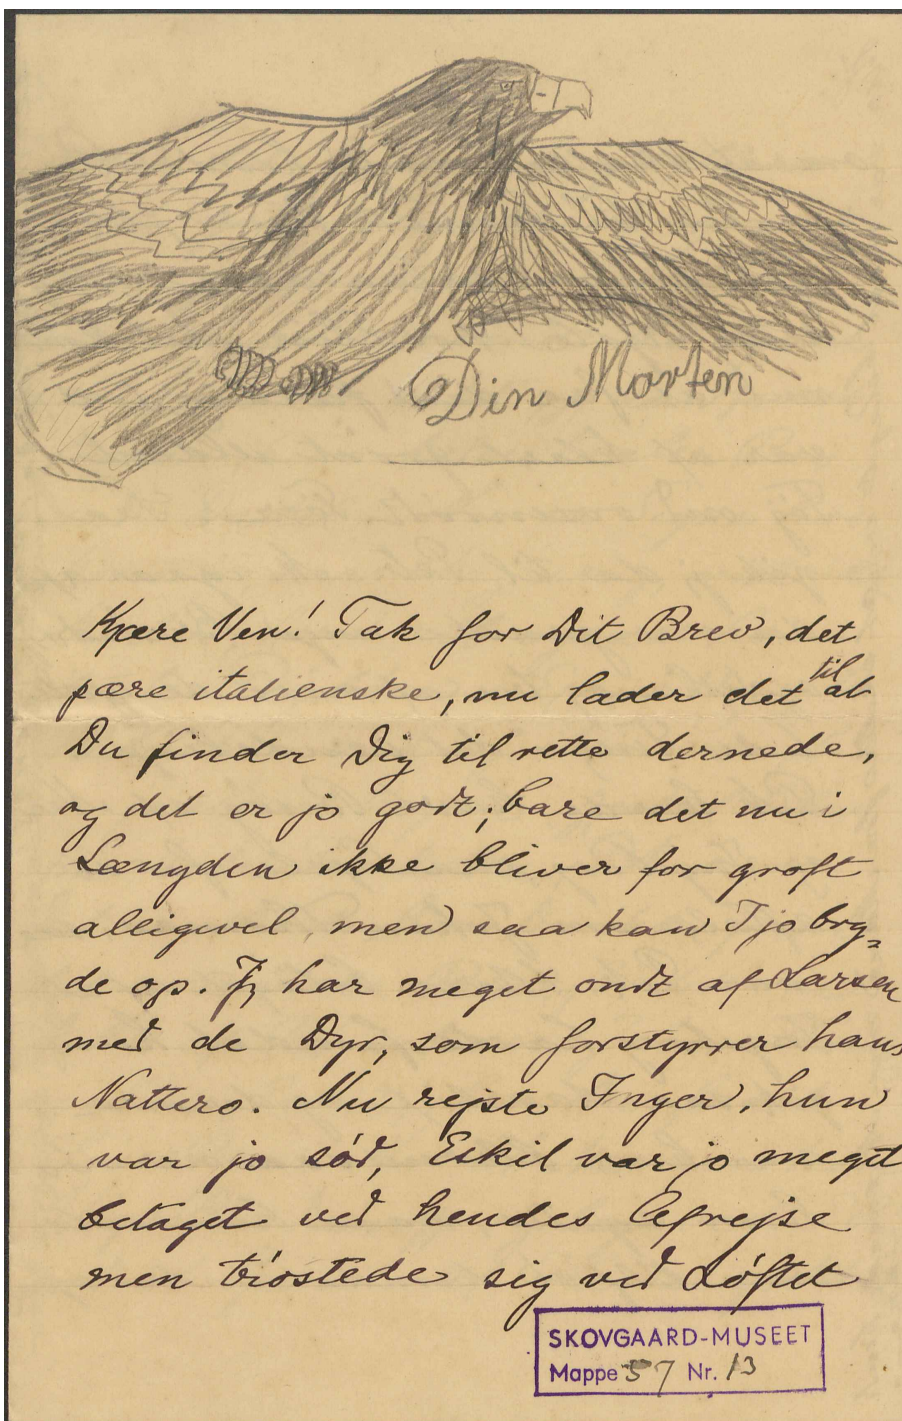 Din Morten
Kjære Ven! Tak for Dit Brev, det
pære italienske, nu lader det til at
Du finder Dig til rette dernede,
og det er jo godt; bare det nu i
Længden ikke bliver for groft
alligevel, men saa kan I jo bry=
de op. Jeg har meget ondt af Larsen
med de Dyr, som forstyrrer hans
Nattero. Nu rejste Inger, hun
var jo sød, Eskil var jo meget
betaget ved hendes Afrejse
men trøstede sig ved Løftet
SKOVGAARD-MUSEET
Mappe 57 Nr. 13